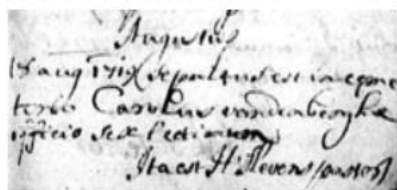 Augustus
18 aug 1719 sepultus est in coeme
terio Carolus vandenberghe
officio sex lectionum
Ita est H Stevens pastor